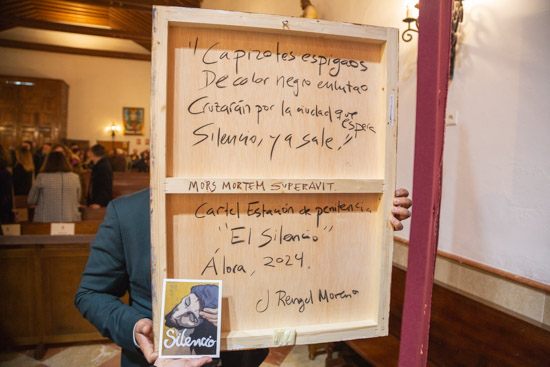 "Capirotes espigaos
De color negro enlutao
Cruzarán por la ciudad que espera
Silencio, ya sale,"
MORS MORTEM SUPERAVIT.
Cartel Estación de penitencia
"El Silencio"
Álora, 2024.
J Rengel Moreno
Silencio